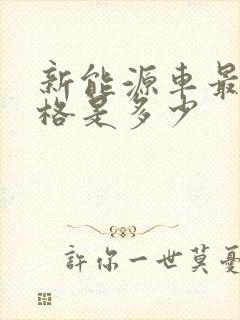 新能源車最
格是多少
許你一世莫憂